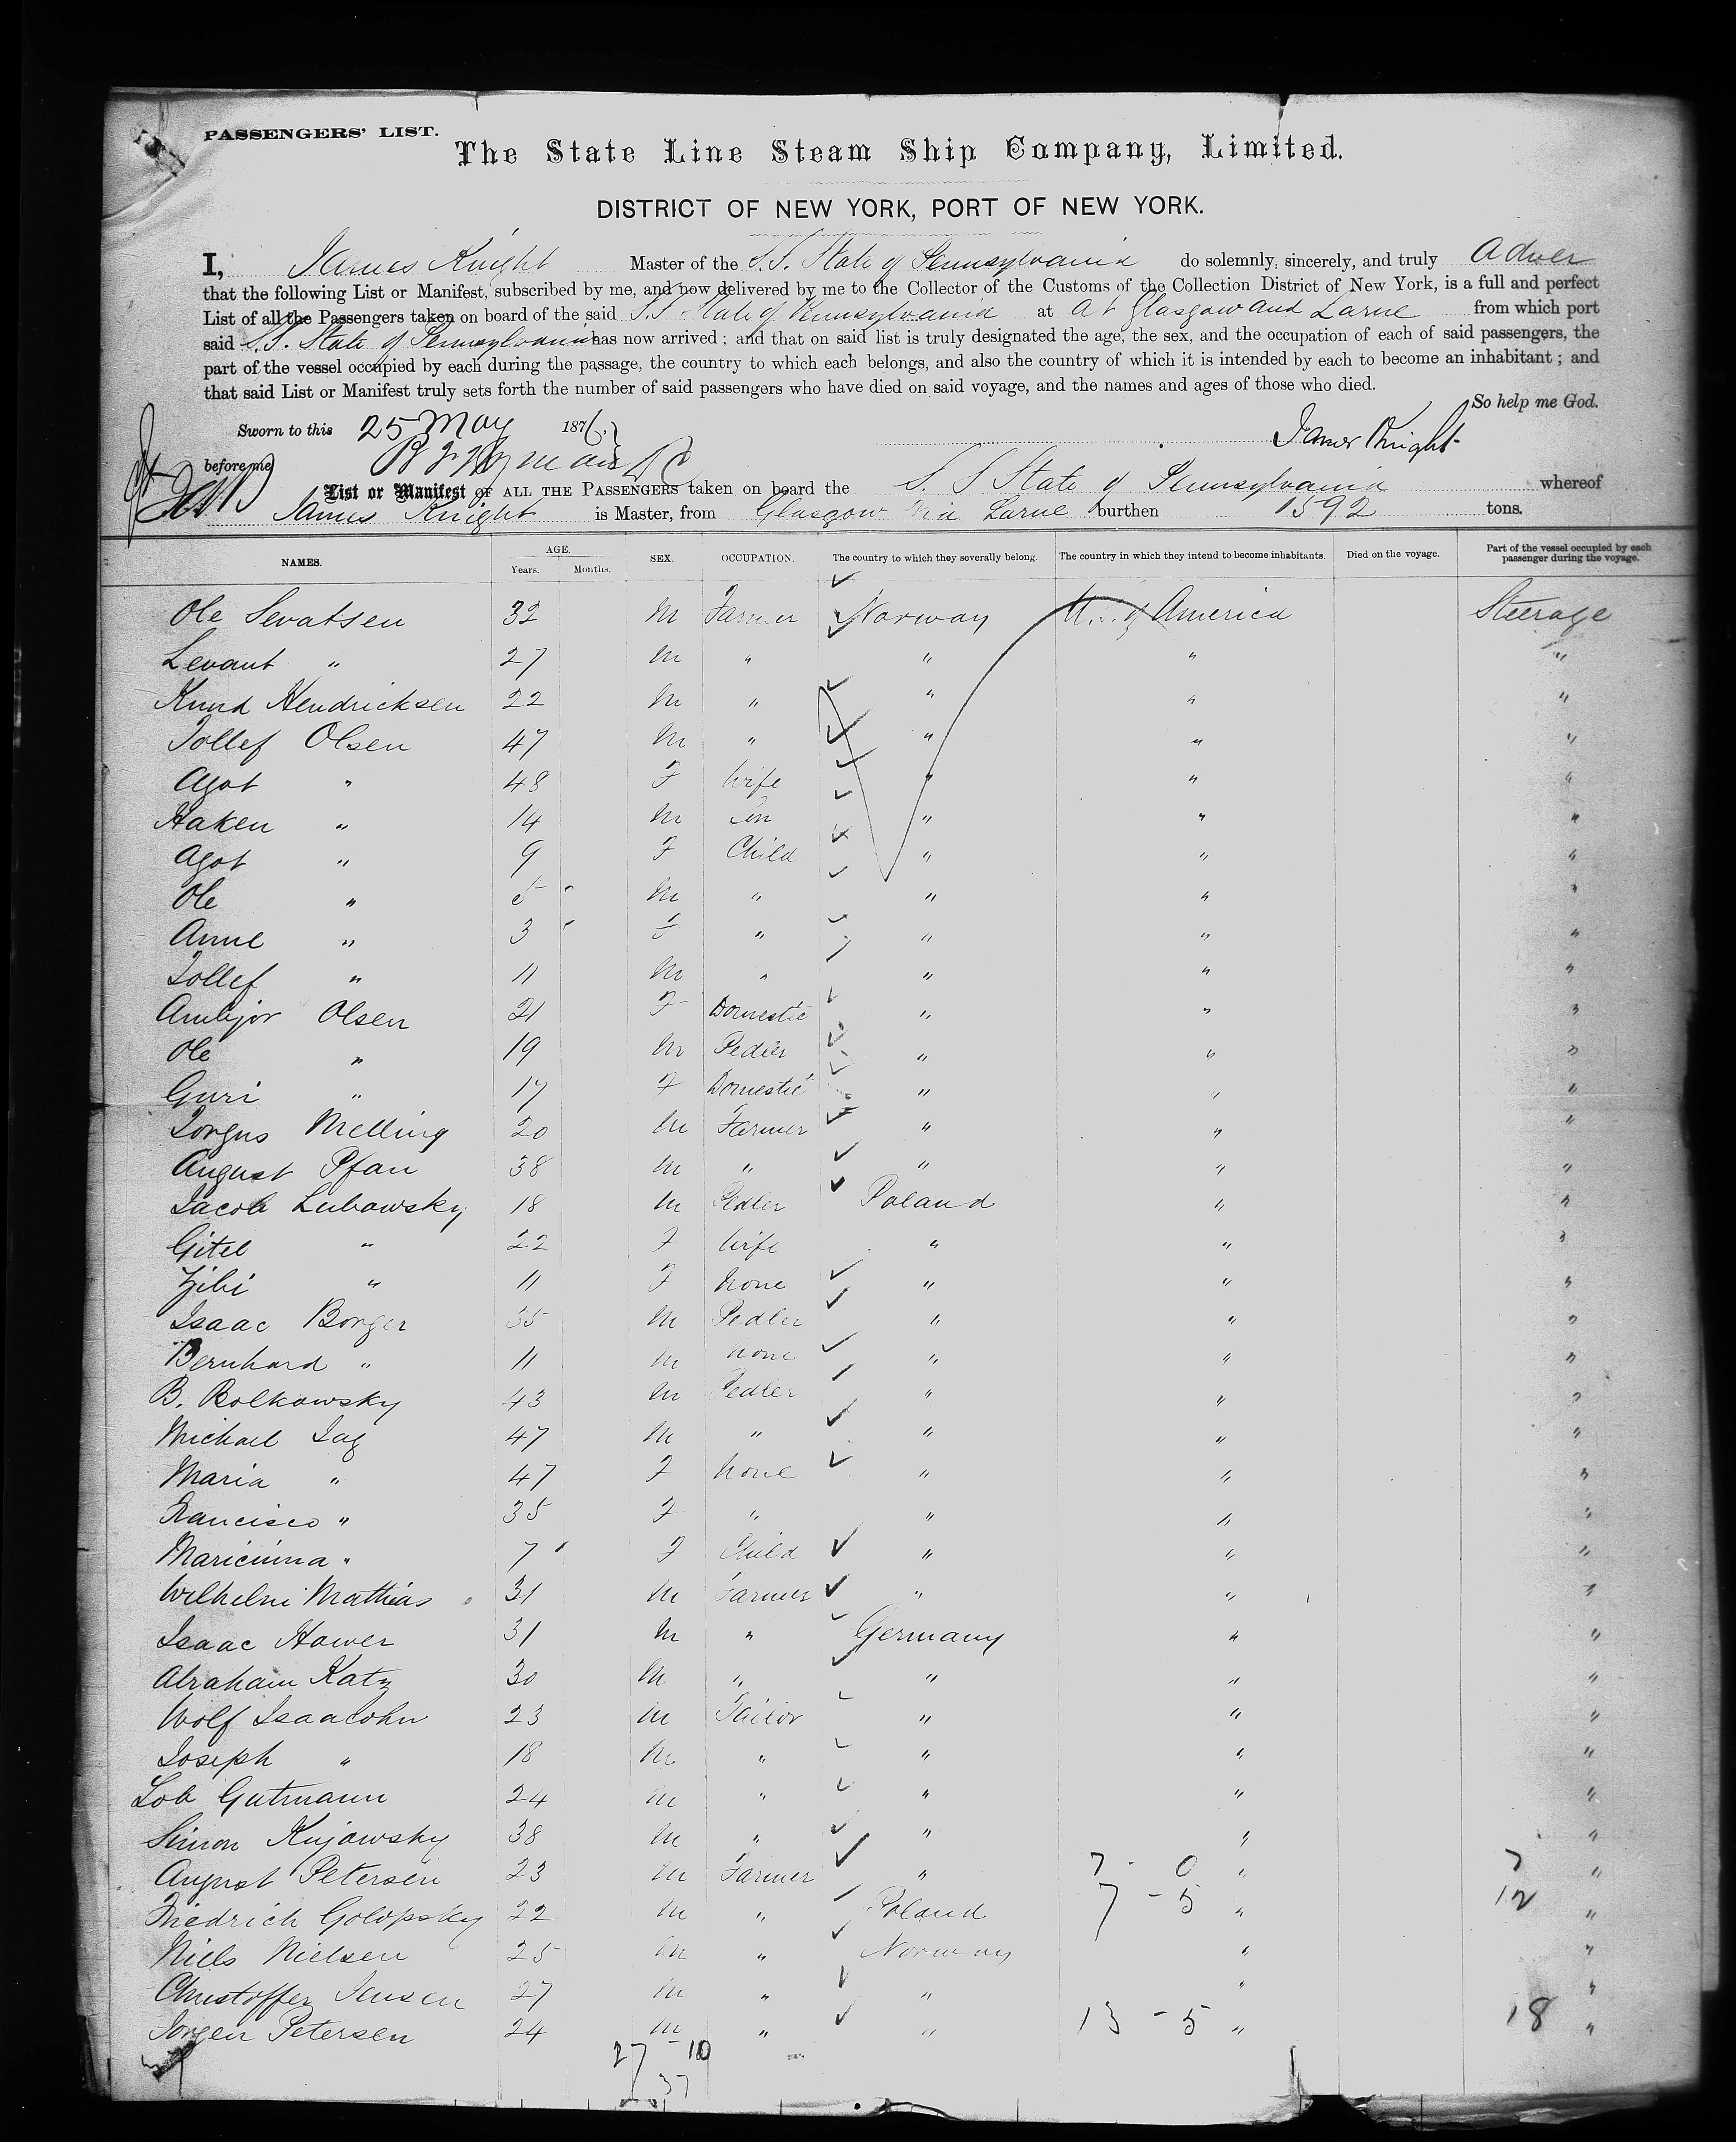 PASSENGERS' LIST.
The State Line Steam Ship Company, Limited.
DISTRICT OF NEW YORK, PORT OF NEW YORK.
I, James Knight Master of the S.S. State of Pennsylvania do solemnly, sincerely, and truly
that the following List or Manifest, subscribed by me, and now delivered by me to the Collector of the Customs of the Collection District of New York, is a full and perfect
List of all the Passengers taken on board of the said S.S. State of Pennsylvania at at Glasgow and Larne from which port
said S.S. State of Pennsylvania has now arrived; and that on said list is truly designated the age, the sex, and the occupation of each of said passengers, the
part of the vessel occupied by each during the passage, the country to which each belongs, and also the country of which it is intended by each to become an inhabitant; and
that said List or Manifest truly sets forth the number of said passengers who have died on said voyage, and the names and ages of those who died.
So help me God.
Sworn to this 25 May 1876
James Knight
before me
List or Manifest OF ALL THE PASSENGERS taken on board the S. S State of Pennsylvania whereof
James Knight is Master, from Glasgow via Larne burthen 1592 tons.
NAMES. AGE. Years. Months. SEX. OCCUPATION. The country to which they severally belong. The country in which they intend to become inhabitants. Died on the voyage. Part of the vessel occupied by each passenger during the voyage.
Ole Sevatsen 32 M Farmer Norway U.S. of America Steerage
Levant " 27 M " " " "
Knud Hendricksen 22 M " " " "
Tollef Olsen 47 M " " " "
Agot " 48 F Wife " " "
Haken " 14 M Son " " "
Agot " 9 F Child " " "
Ole " 5 M " " " "
Anne " 3 F " " " "
Tollef " 11 M " " " "
Olsen 21 F Domestic " " "
Ole " 19 M Pedler " " "
Guri " 17 F Domestic " " "
Melling 20 M Farmer " " "
August Pfan 38 M " " " "
Jacob Lubowsky 18 M Pedler Poland " "
Gitel " 22 F Wife " " "
" 11 F None " " "
Isaac Borger 35 M Pedler " " "
Bernhard " 11 M None " " "
B. Bolkowsky 43 M Pedler " " "
Michael 47 M " " " "
Maria " 47 F None " " "
Francisco " 35 F " " " "
" 7 F Child " " "
Wilhelm Mathias 31 M Farmer " " "
Isaac Hower 31 M " Germany " "
Abraham Katz 30 M " " " "
Wolf Isaacohn 23 M Tailor " " "
Joseph " 18 M " " " "
Lob Gutmann 24 M " " " "
Simon Kujawsky 38 M " " " "
August Petersen 23 M Farmer " 7 - 0 " 7 "
Friedrich Golopsky 22 M " Poland 7 - 5 " 12 "
Niels Nielsen 25 M " Norway " "
Christoffer Jensen 27 M " " " "
Jorgen Petersen 24 M " " 13 - 5 " 18 "
27 - 10
37